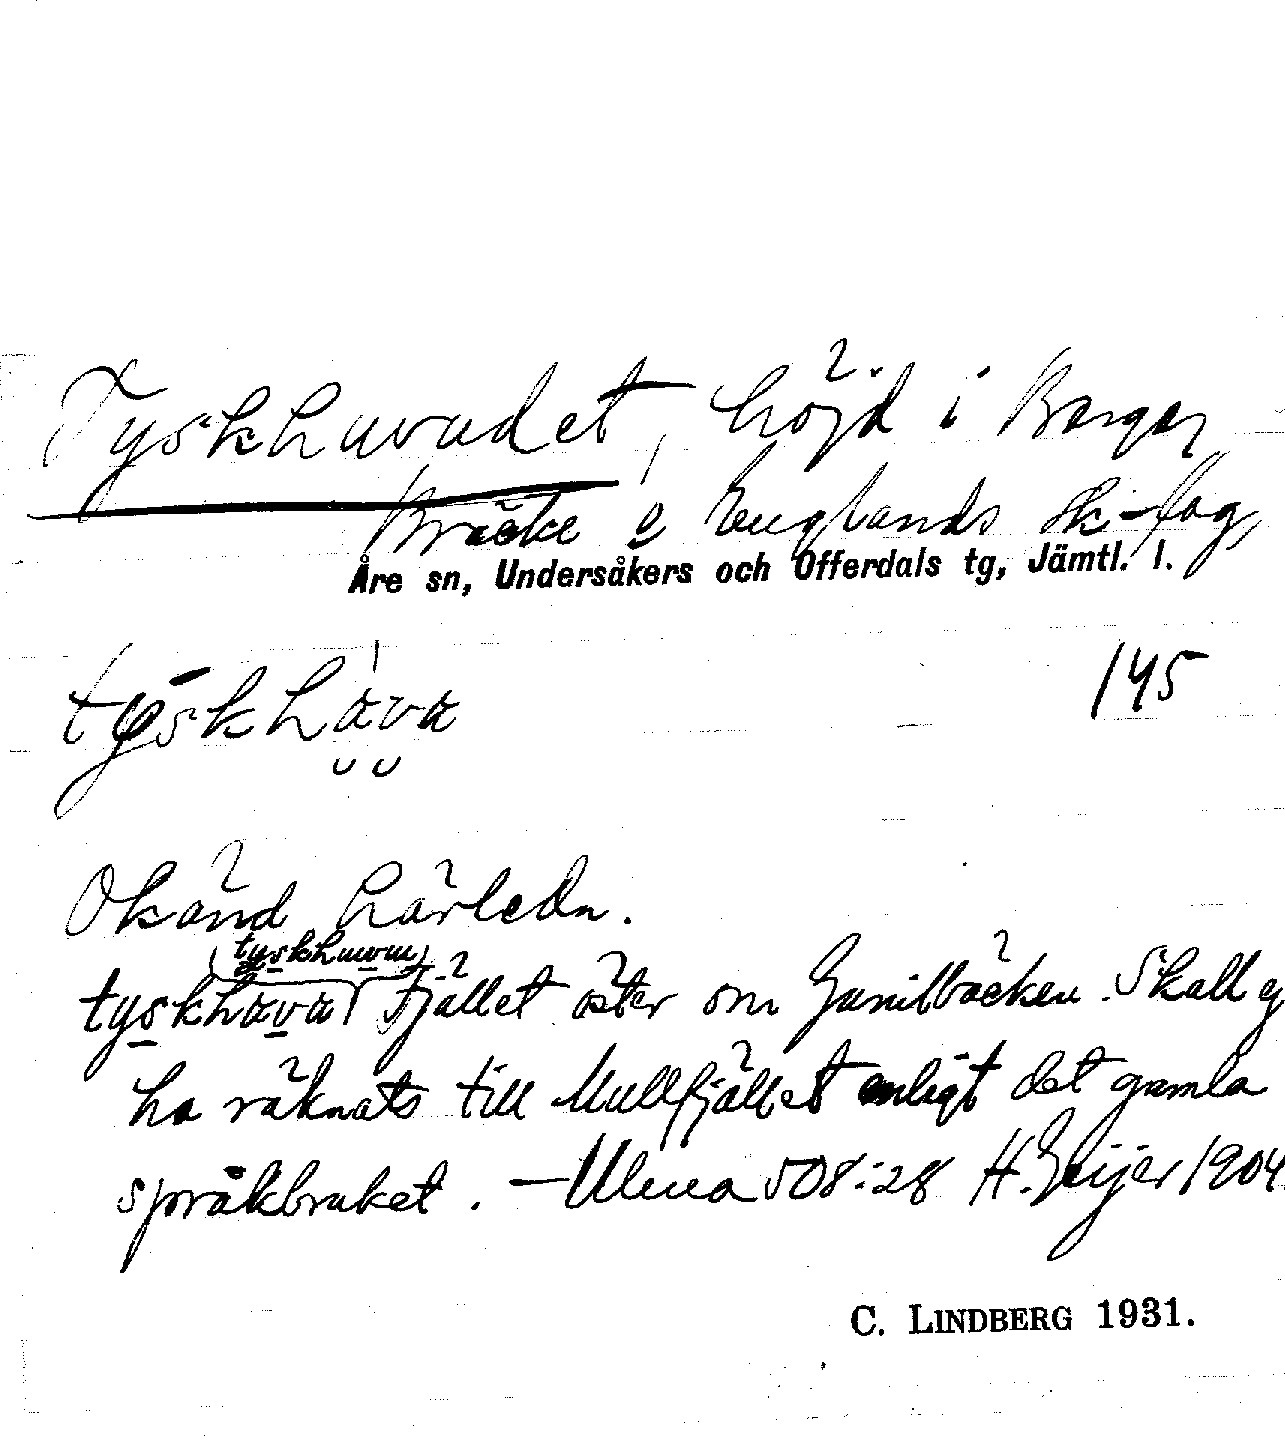 Tyskhuvudet, höjd i Berge,
Bräcke o Englands sk-lag,
Åre sn, Undersåkers och Offerdals tg, Jämtl. l.
tyskhava 145
Okänd härledn.
(tyskhuvun)
tyskhava fjället öster om Gunilbäcken. Skall ej
ha räknats till Mullfjället enligt det gamla
språkbruket. – Ulma 508:28 H. Geijer 1904
C. LINDBERG 1931.